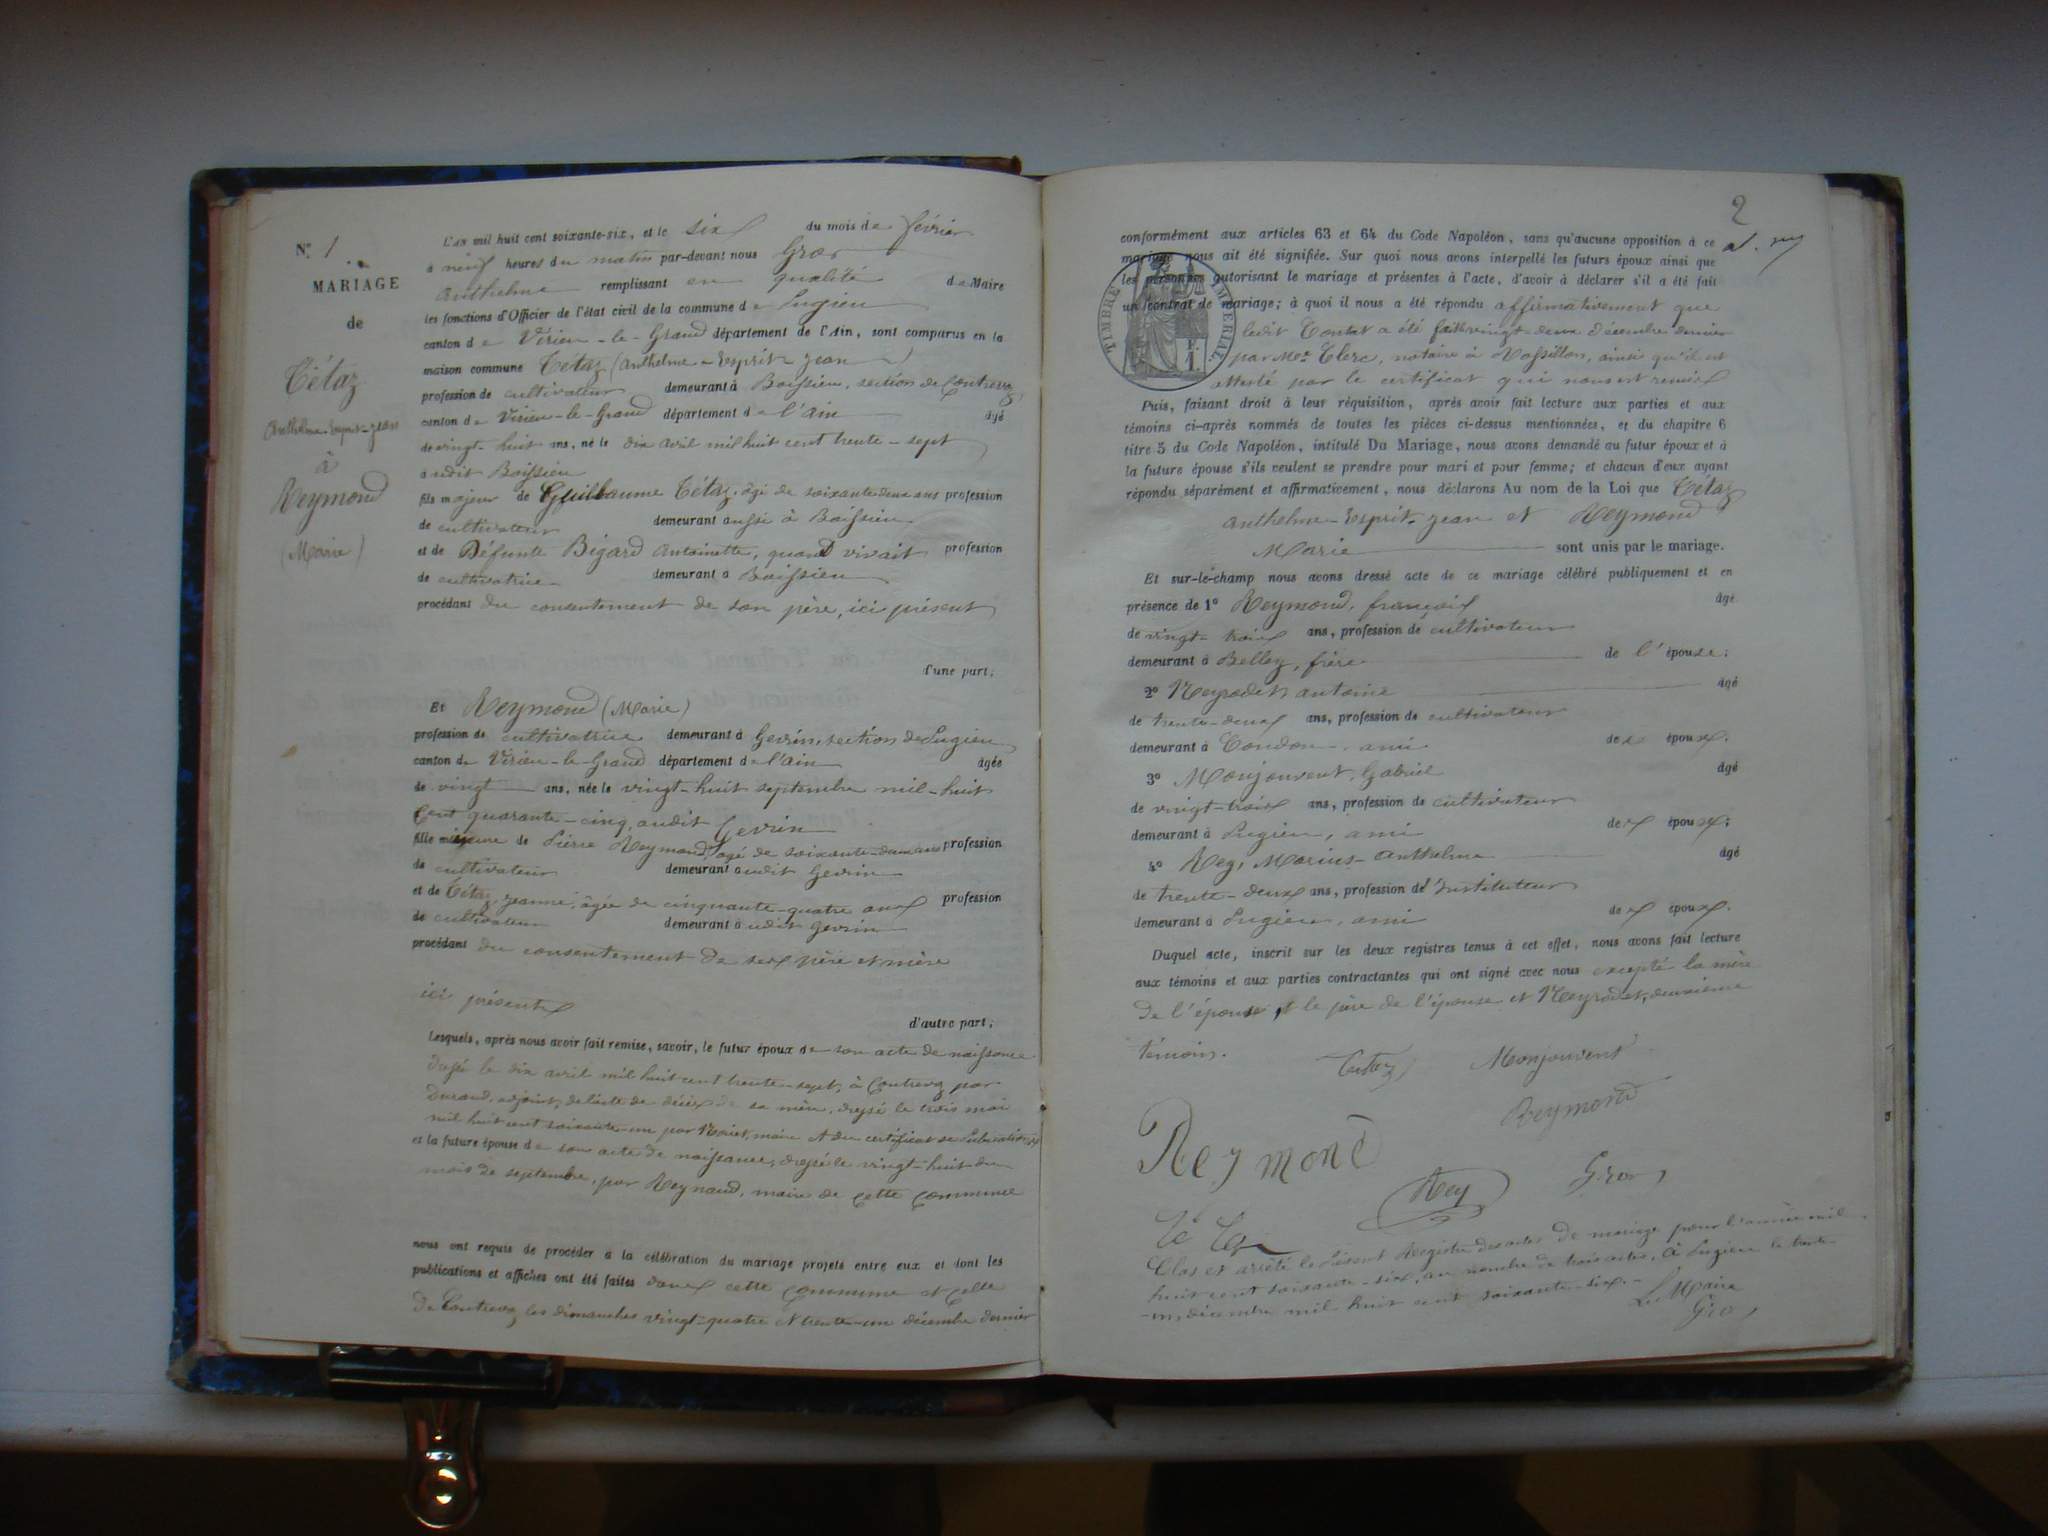 N.° 1
MARIAGE
de
Tétaz
Anthelme-Esprit-Jean
à
Reymond
(Marie)
L'an mil huit cent soixante-six, et le six du mois de février
à neuf heures du matin par-devant nous Gros
Anthelme remplissant en qualité de Maire
les fonctions d'Officier de l'état civil de la commune de Pugieu
canton de Virieu-le-Grand département de l'Ain, sont comparus en la
maison commune Tétaz (Anthelme-Esprit-Jean)
profession de cultivateur demeurant à Boissieu, section de Contrevoz,
canton de Virieu-le-Grand département de l'Ain âgé
de vingt-huit ans, né le dix avril mil huit cent trente-sept
audit Boissieu
fils majeur de Guillaume Tétaz, âgé de soixante-deux ans profession
de cultivateur demeurant aussi à Boissieu
et de Défunte Bigard Antoinette, quand vivait profession
de cultivatrice demeurant à Boissieu
procédant du consentement de son père, ici présent
d'une part;
Et Reymond (Marie)
profession de cultivatrice demeurant à Gevrin, section de Pugieu
canton de Virieu-le-Grand département de l'Ain âgée
de vingt ans, née le vingt-huit septembre mil-huit
cent quarante-cinq, audit Gevrin
fille mineure de Pierre Reymond, âgé de soixante-deux ans profession
de cultivateur demeurant audit Gevrin
et de Tétaz Jeanne, âgée de cinquante-quatre ans profession
de cultivateur demeurant audit Gevrin
procédant du consentement de ses père et mère
ici présents
d'autre part;
Lesquels, après nous avoir fait remise, savoir, le futur époux de son acte de naissance
dressé le dix avril mil huit cent trente-sept, à Contrevoz par
Durand, adjoint, de l'acte de décès de sa mère, dressé le trois mai
mil huit cent soixante-un par maire et du certificat de Publications
et la future épouse de son acte de naissance, dressé le vingt-huit du
mois de septembre, par Reynaud, maire de cette commune
nous ont requis de procéder à la célébration du mariage projeté entre eux et dont les
publications et affiches ont été faites dans cette commune et celle
de Contrevoz, les dimanches vingt-quatre et trente-un décembre dernier
2
conformément aux articles 63 et 64 du Code Napoléon, sans qu'aucune opposition à ce
mariage nous ait été signifiée. Sur quoi nous avons interpellé les futurs époux ainsi que
les personnes autorisant le mariage et présentes à l'acte, d'avoir à déclarer s'il a été fait
un contrat de mariage; à quoi il nous a été répondu affirmativement que
TIMBRE IMPÉRIAL
ledit Contrat a été fait le vingt-deux décembre dernier
par Me Clerc, notaire à Rossillon, ainsi qu'il est
attesté par le certificat qui nous est remis
Puis, faisant droit à leur réquisition, après avoir fait lecture aux parties et aux
témoins ci-après nommés de toutes les pièces ci-dessus mentionnées, et du chapitre 6
titre 5 du Code Napoléon, intitulé Du Mariage, nous avons demandé au futur époux et à
la future épouse s'ils veulent se prendre pour mari et pour femme; et chacun d'eux ayant
répondu séparément et affirmativement, nous déclarons Au nom de la Loi que Tétaz
Anthelme-Esprit-Jean et Reymond
Marie sont unis par le mariage.
Et sur-le-champ nous avons dressé acte de ce mariage célébré publiquement et en
présence de 1° Reymond, françois âgé
de vingt-trois ans, profession de cultivateur
demeurant à Belley, frère de l'épouse;
2° Neyrodet, antoine âgé
de trente-deux ans, profession de cultivateur
demeurant à Condon, ami des époux.
3° Monjouvent, Gabriel âgé
de vingt-trois ans, profession de cultivateur
demeurant à Pugieu, ami des époux;
4° Rey, Marius-Anthelme âgé
de trente-deux ans, profession d'Instituteur
demeurant à Pugieu, ami des époux.
Duquel acte, inscrit sur les deux registres tenus à cet effet, nous avons fait lecture
aux témoins et aux parties contractantes qui ont signé avec nous excepté la mère
de l'épouse, et le père de l'épouse et Neyrodet, deuxième
témoin.
Tétaz Monjouvent
Reymond
Reymond
Rey Gros
Tétaz
Clos et arrêté le Présent Registre des actes de mariage pour l'année mil
huit cent soixante-six, au nombre de trois actes, à Pugieu le trente
-un, décembre mil huit cent soixante-six.
Le Maire
Gros